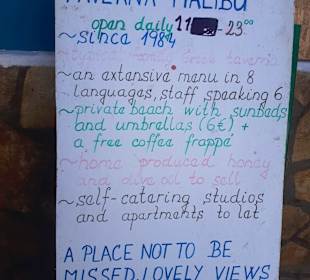 TAVERNA MALIBU
open daily 11 - 23.00
~since 1984
~typical family Greek taverna
~an extensive menu in 8
languages, staff speaking 6
~private beach with sunbeds
and umbrellas (6€) +
a free coffee frappé
~home produced honey
and olive oil to sell
~self-catering studios
and apartments to let
A PLACE NOT TO BE
MISSED, LOVELY VIEWS